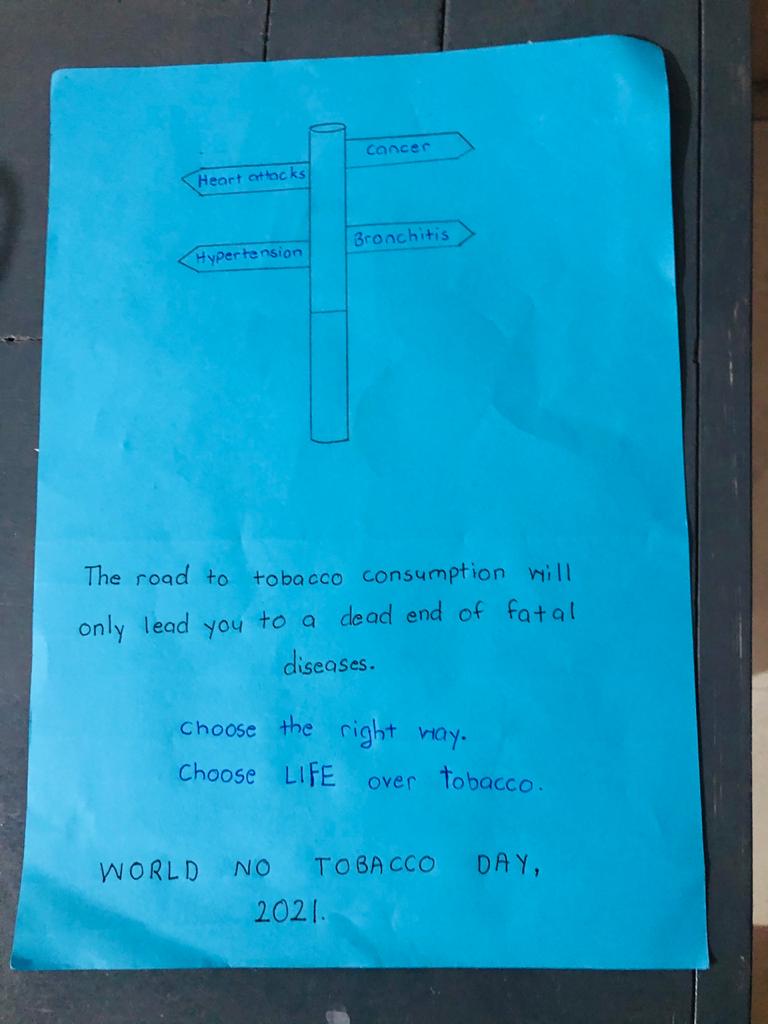 Cancer
Heart attacks
Bronchitis
Hypertension
The road to tobacco consumption will
only lead you to a dead end of fatal
diseases.
Choose the right way.
Choose LIFE over tobacco.
WORLD NO TOBACCO DAY,
2021.